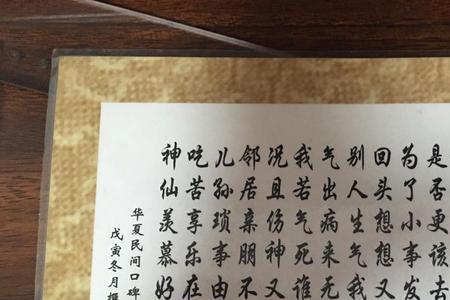 是否更该去
为了小事发
回头想想又
别人生气我
气出病来无
我若气死谁
况且伤神又
邻居亲朋不
儿孙琐事由
吃苦享乐在
神仙羡慕好
华夏民间口碑
戊寅冬月